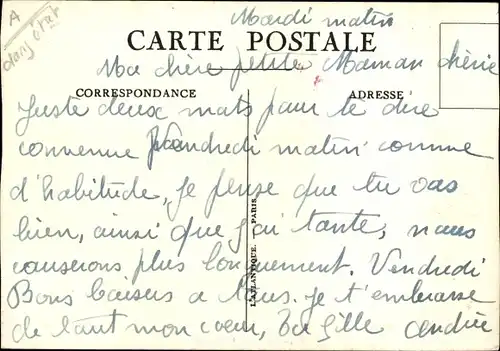 A
dans état
Mardi matin
CARTE POSTALE
Ma chère petite Maman chérie
CORRESPONDANCE
ADRESSE
Juste deux mots pour te dire
convenue Vendredi matin comme
d'habitude, je pense que tu vas
bien, ainsi que tante, nous
causerons plus longuement. Vendredi
Bons baisers a tous. je t'embrasse
de tout mon coeur, Ta fille Andrée
L'ATLANTIQUE. — PARIS.